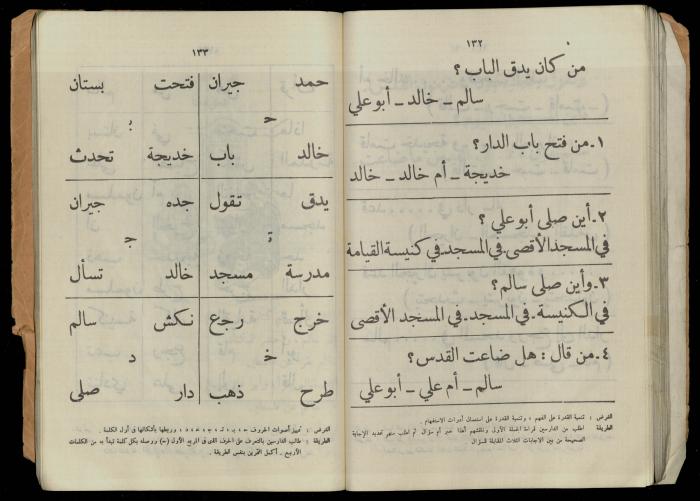 ١٣٢
من كان يدق الباب ؟
سالم ـ خالد ـ أبو علي
١. من فتح باب الدار؟
خديجة ـ أم خالد ـ خالد
٢. أين صلى أبو علي ؟
في المسجد الأقصى. في المسجد. في كنيسة القيامة
٣. وأين صلى سالم ؟
في الكنيسة. في المسجد. في المسجد الأقصى
٤. من قال : هل ضاعت القدس ؟
سالم ـ أم علي ـ أبو علي
الغرض : تنمية القدرة على الفهم ، وتنمية القدرة على استعمال أدوات الاستفهام .
الطريقة : اطلب من الدارسين قراءة الجملة الأولى وناقشهم أهذا خبر أم سؤال ثم اطلب منهم تحديد الإجابة
الصحيحة من بين الاجابات الثلاث المقابلة للسؤال
١٣٣
حمد جيران فتحت بستان
حـ بـ
خالد باب خديجة تحدث
يدق تقول جده جيران
تـ جـ
مدرسة مسجد خالد تسأل
خرج رجع نكش سالم
خـ د
طرح ذهب دار صلى
الغرض : تمييز أصوات الحروف وربطها بأشكالها في أول الكلمة .
الطريقة : طالب الدارسين بالتعرف على الحرف المربع الأول (حـ) ووصله بكل كلمة تبدأ به من الكلمات
الأربع . أكمل التمرين بنفس الطريقة .